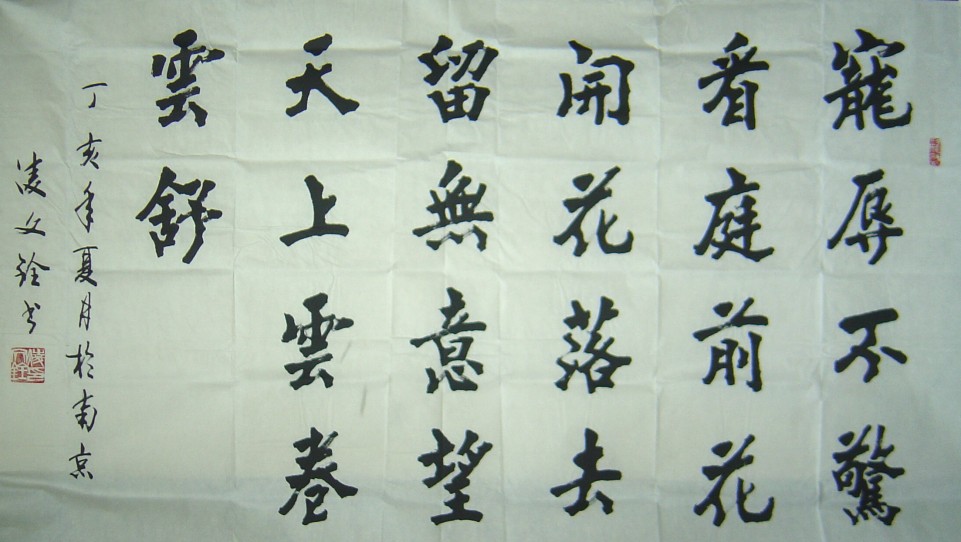 寵辱不驚
看庭前花
開花落去
留無意望
天上雲卷
雲舒
丁亥年夏月於南京
凌文銓书